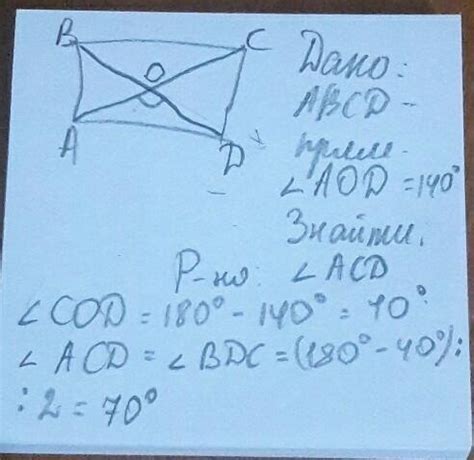 B
C
O
A
D
Дано:
ABCD -
прям.
∠AOD = 140°
Знайти.
Р-но: ∠ACD
∠COD = 180° - 140° = 40°
∠ACD = ∠BDC = (180° - 40°) :
: 2 = 70°